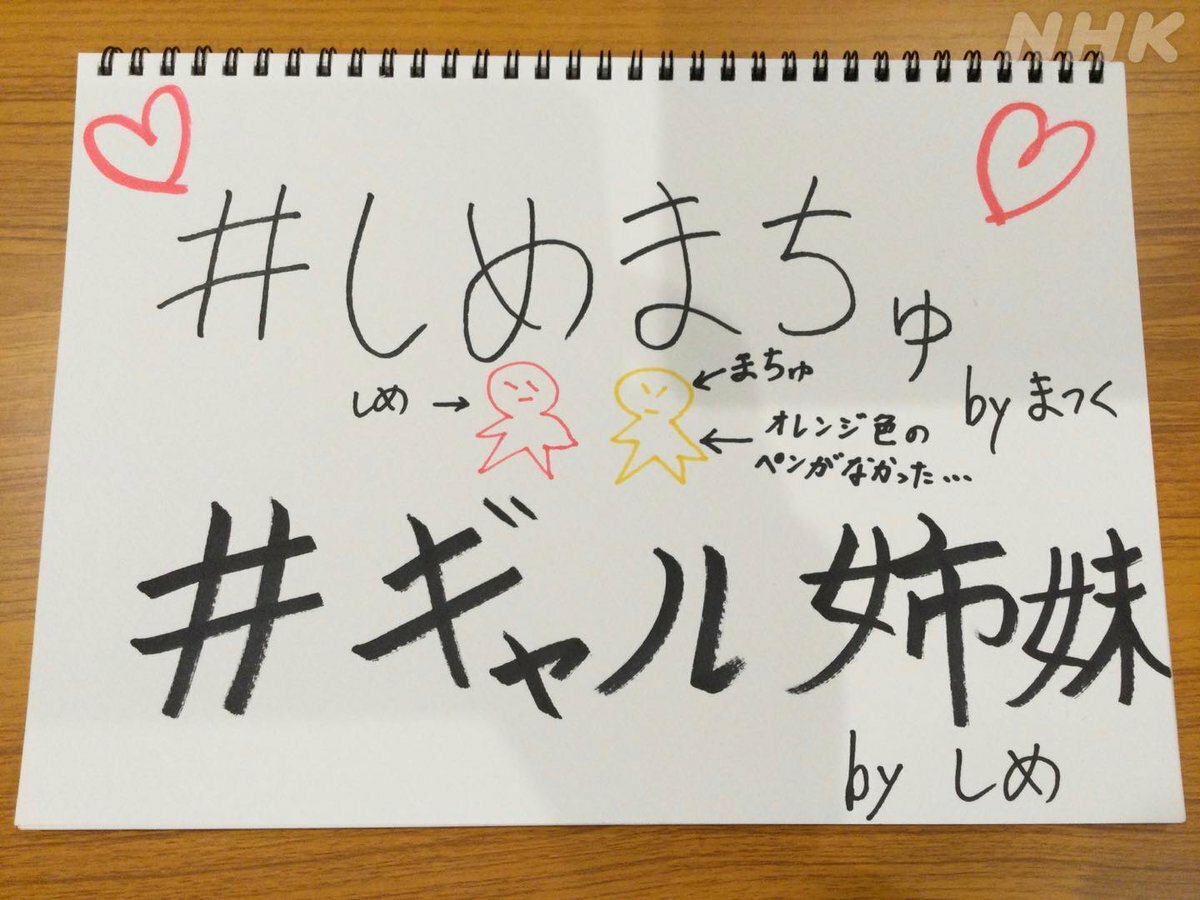 NHK
#しめまちゅ
by まつく
しめ→
←まちゅ
←オレンジ色の
ペンがなかった…
#ギャル姉妹
by しめ